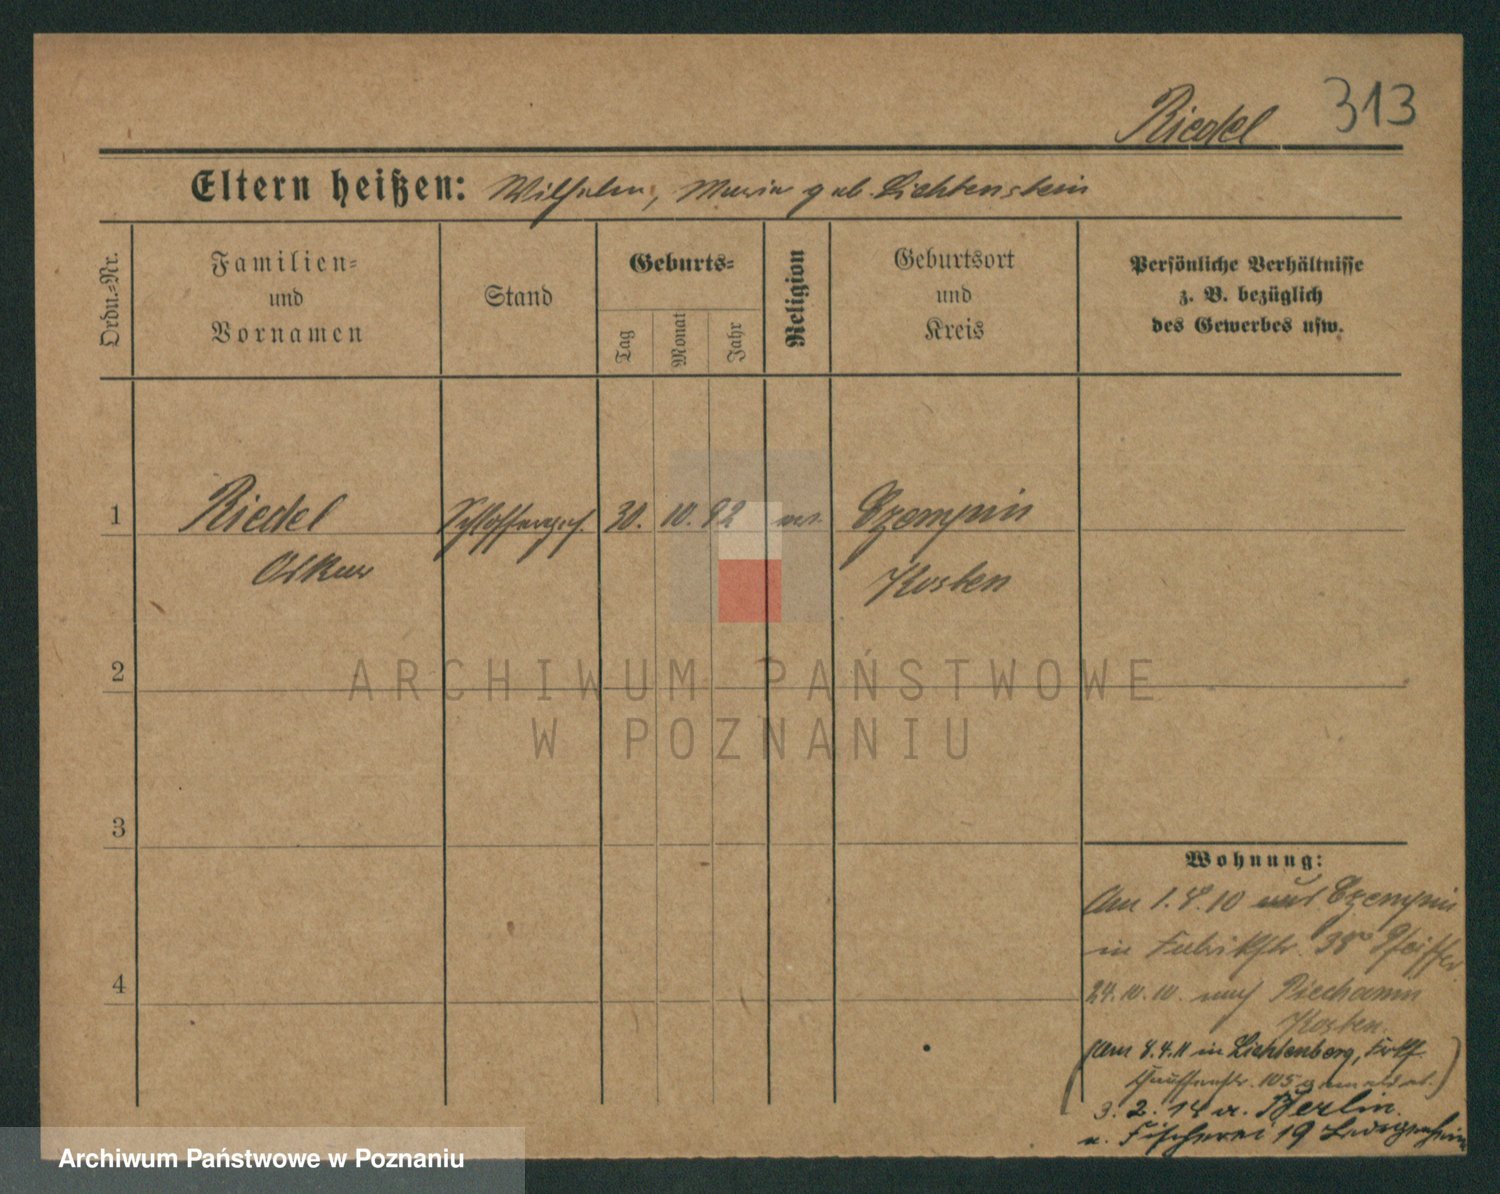 Riedel 313
Eltern heißen: Wilhelm, Maria geb. Lichtenstein
Ordn.-Nr.
Familien-
und
Vornamen
Stand
Geburts-
Tag
Monat
Jahr
Religion
Geburtsort
und
Kreis
Persönliche Verhältnisse
z. B. bezüglich
des Gewerbes usw.
1 Riedel Schlosserges. 30. 10. 82 ev. Czempin
Oskar Kosten
2
3
4
Wohnung:
Am 1.8.10 aus Czempin
in Fabrikstr. 38 Pfeiffer
24.10.10. nach Piechanin
Kosten.
(Am 8.4.11 in Lichtenberg,
105 gemeldet.)
3. 2. 14 a. Berlin.
n. Fischerei 19
ARCHIWUM PAŃSTWOWE
W POZNANIU
Archiwum Państwowe w Poznaniu